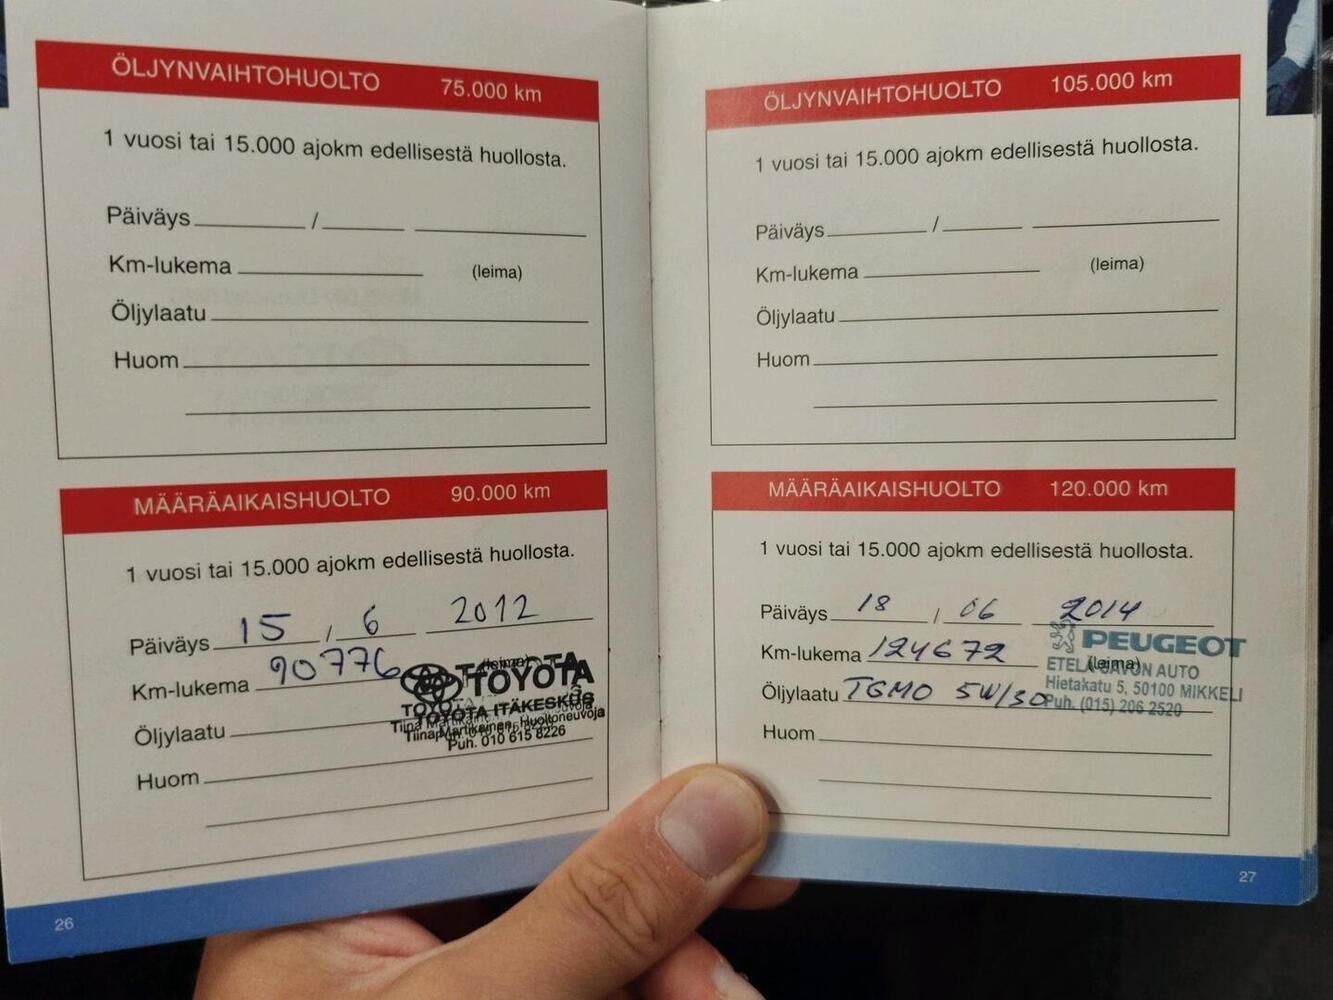 ÖLJYNVAIHTOHUOLTO 75.000 km
1 vuosi tai 15.000 ajokm edellisestä huollosta.
Päiväys / 
Km-lukema (leima)
Öljylaatu
Huom
MÄÄRÄAIKAISHUOLTO 90.000 km
1 vuosi tai 15.000 ajokm edellisestä huollosta.
Päiväys 15 / 6 2012
Km-lukema 90776 (leima)
TOYOTA
TOYOTA ITÄKESKUS
Öljylaatu
Tiina Martikainen, Huoltoneuvoja
Puh. 010 615 8226
Huom
26
ÖLJYNVAIHTOHUOLTO 105.000 km
1 vuosi tai 15.000 ajokm edellisestä huollosta.
Päiväys /
Km-lukema (leima)
Öljylaatu
Huom
MÄÄRÄAIKAISHUOLTO 120.000 km
1 vuosi tai 15.000 ajokm edellisestä huollosta.
Päiväys 18 / 06 2014
PEUGEOT
Km-lukema 124672 (leima)
ETELÄ-SAVON AUTO
Hietakatu 5, 50100 MIKKELI
Öljylaatu TGMO 5W/30
Puh. (015) 206 2520
Huom
27